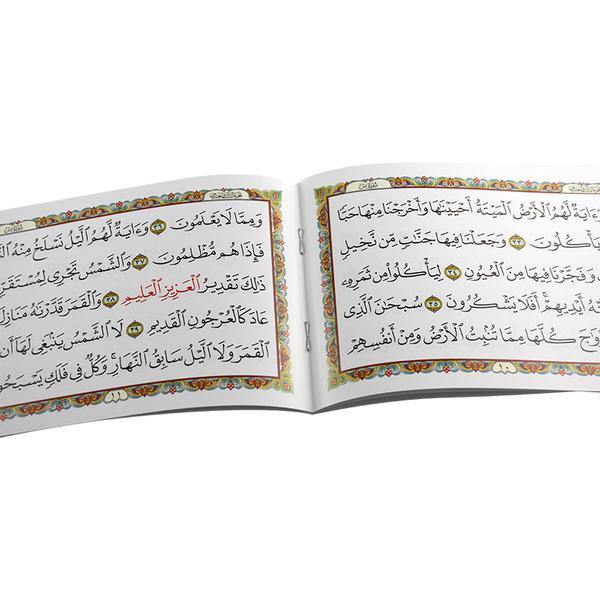 وَءَايَةٌ لَّهُمُ ٱلْأَرْضُ ٱلْمَيْتَةُ أَحْيَيْنَٰهَا وَأَخْرَجْنَا مِنْهَا حَبًّا
يَأْكُلُونَ ٣٣ وَجَعَلْنَا فِيهَا جَنَّٰتٍ مِّن نَّخِيلٍ
وَفَجَّرْنَا فِيهَا مِنَ ٱلْعُيُونِ ٣٤ لِيَأْكُلُوا۟ مِن ثَمَرِهِۦ
أَيْدِيهِمْ ۖ أَفَلَا يَشْكُرُونَ ٣٥ سُبْحَٰنَ ٱلَّذِى
كُلَّهَا مِمَّا تُنۢبِتُ ٱلْأَرْضُ وَمِنْ أَنفُسِهِمْ
١٠
وَمِمَّا لَا يَعْلَمُونَ ٣٦ وَءَايَةٌ لَّهُمُ ٱلَّيْلُ نَسْلَخُ مِنْهُ
فَإِذَا هُم مُّظْلِمُونَ ٣٧ وَٱلشَّمْسُ تَجْرِى لِمُسْتَقَرٍّ
ذَٰلِكَ تَقْدِيرُ ٱلْعَزِيزِ ٱلْعَلِيمِ ٣٨ وَٱلْقَمَرَ قَدَّرْنَٰهُ مَنَازِلَ
عَادَ كَٱلْعُرْجُونِ ٱلْقَدِيمِ ٣٩ لَا ٱلشَّمْسُ يَنۢبَغِى لَهَآ أَن
ٱلْقَمَرَ وَلَا ٱلَّيْلُ سَابِقُ ٱلنَّهَارِ ۚ وَكُلٌّ فِى فَلَكٍ يَسْبَحُونَ
١١